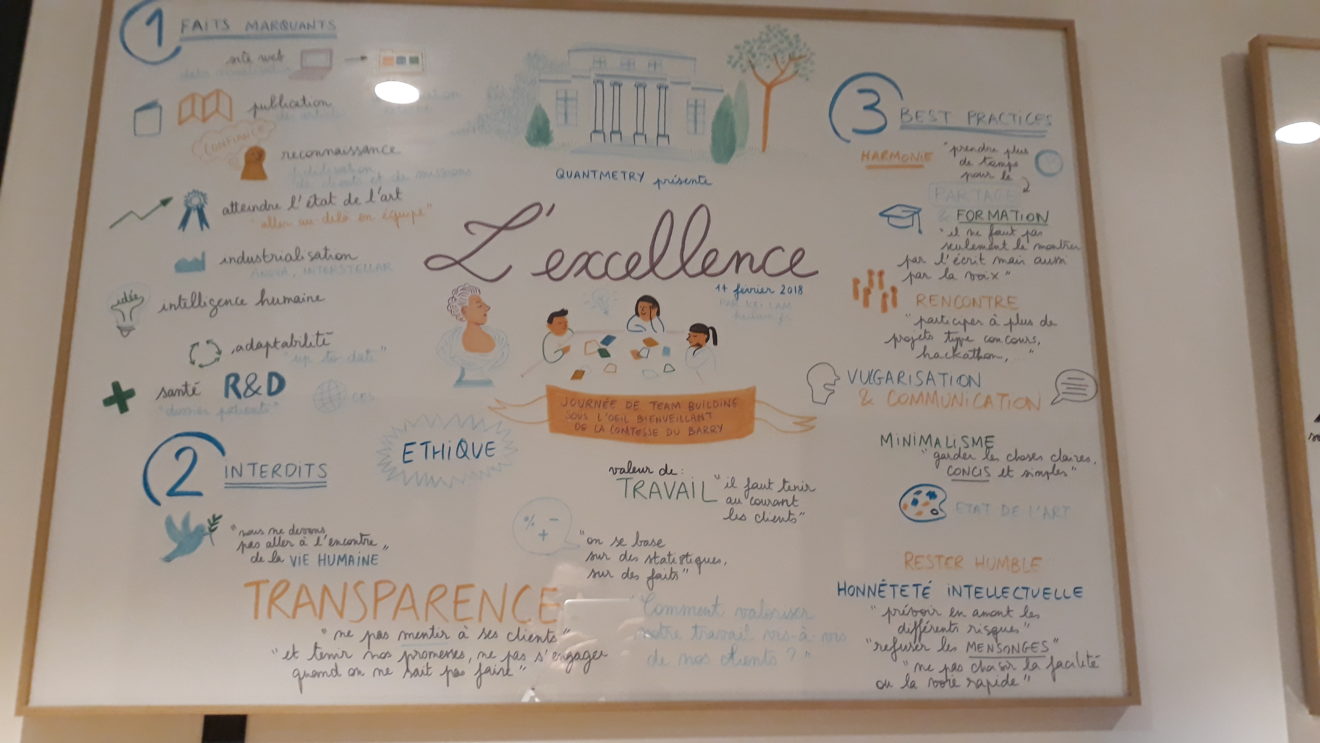 1 FAITS MARQUANTS
site web
publication
CONFIANCE
reconnaissance
de clients et de missions
atteindre l'état de l'art
"aller au delà en équipe"
industrialisation
INTERSTELLAR
idée
intelligence humaine
adaptabilité
"up to date"
santé R&D
"dossier patient"
CES
QUANTMETRY présente
L'excellence
14 février 2018
JOURNÉE DE TEAM BUILDING
SOUS L'OEIL BIENVEILLANT
DE LA COMTESSE DU BARRY
ETHIQUE
2 INTERDITS
"nous ne devons
pas aller à l'encontre
de la VIE HUMAINE"
valeur de:
TRAVAIL "il faut tenir
au courant
les clients"
% - +
"on se base
sur des statistiques,
sur des faits"
TRANSPARENCE
"ne pas mentir à ses clients"
"et tenir nos promesses, ne pas s'engager
quand on ne sait pas faire"
"Comment valoriser
notre travail vis-à vis
de nos clients ?"
3 BEST PRACTICES
HARMONIE "prendre plus
de temps
pour le
PARTAGE
& FORMATION
"il ne faut pas
seulement le montrer
par l'écrit mais aussi
par la voix"
RENCONTRE
"participer à plus de
projets type concours,
hackathon, ..."
VULGARISATION
& COMMUNICATION
MINIMALISME
"garder les choses claires,
CONCIS et simples"
ETAT DE L'ART
RESTER HUMBLE
HONNÊTETÉ INTELLECTUELLE
"prévoir en amont les
différents risques"
"refuser les MENSONGES"
"ne pas choisir la facilité
ou la voie rapide"